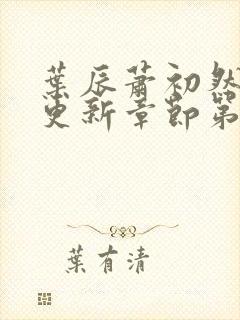 葉辰蕭初然
更新章節第
葉有清